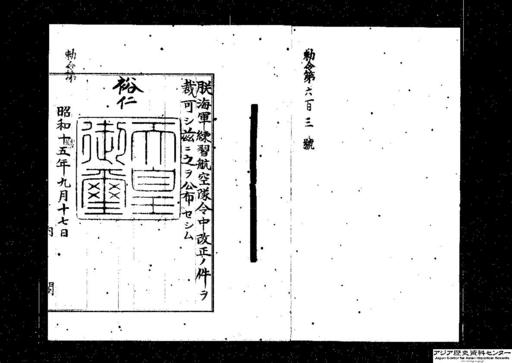 勅令第六百三號
勅令第
朕海軍練習航空隊令中改正ノ件ヲ
裁可シ茲ニ之ヲ公布セシム
裕仁
天皇
御璽
昭和十五年九月十七日
内閣
アジア歴史資料センター
Japan Center for Asian Historical Records